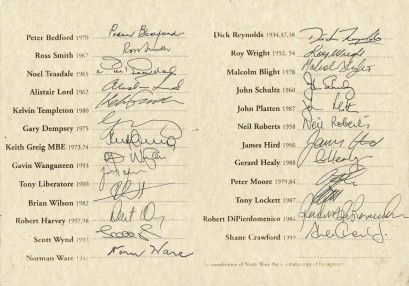 Peter Bedford 1970 Peter Bedford
Ross Smith 1967 Ross Smith
Noel Teasdale 1965
Alistair Lord 1962
Kelvin Templeton 1980
Gary Dempsey 1975
Keith Greig MBE 1973,74
Gavin Wanganeen 1993
Tony Liberatore 1990
Brian Wilson 1982
Robert Harvey 1997,98
Scott Wynd 1992
Norman Ware Norm Ware
Dick Reynolds 1934,37,38 Dick Reynolds
Roy Wright 1952, 54 Roy Wright
Malcolm Blight 1978
John Schultz 1960
John Platten 1987
Neil Roberts 1958 Neil Roberts
James Hird 1996 James Hird
Gerard Healy 1988 G Healy
Peter Moore 1979,84
Tony Lockett 1987
Robert DiPierdomenico 1986
Shane Crawford 1999
In remembrance of Norm Ware this is a true copy of his signature